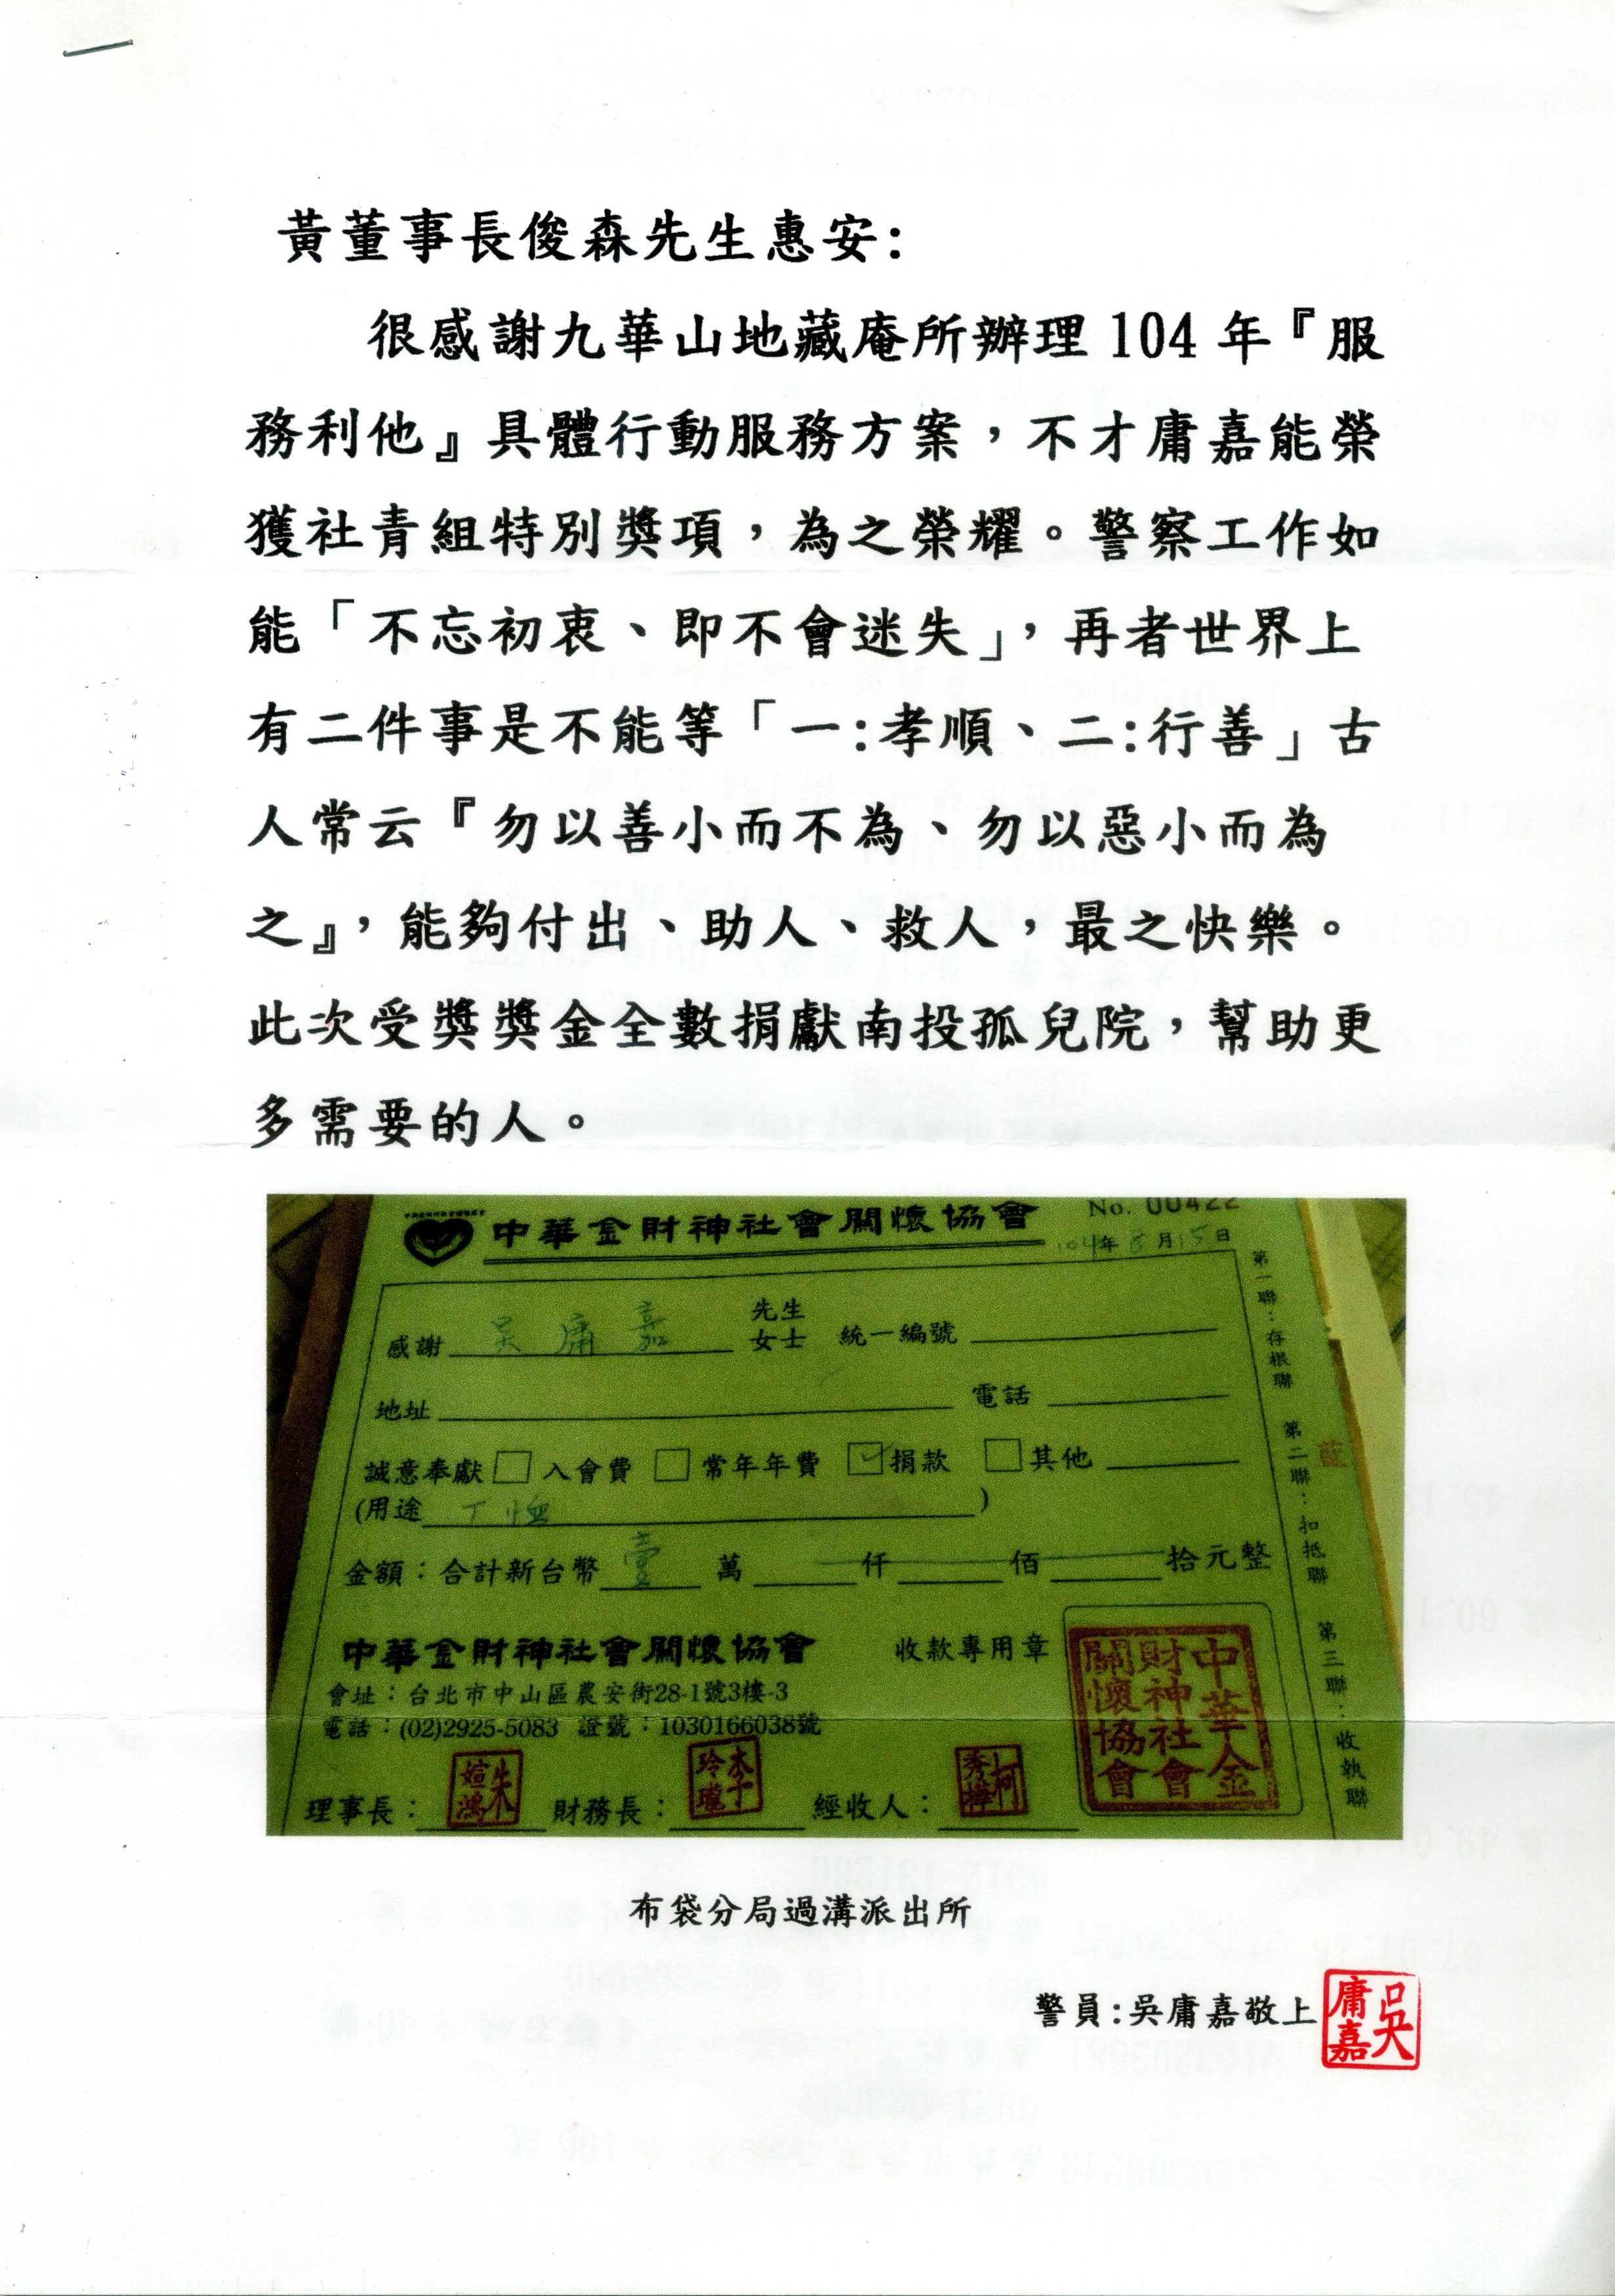 黃董事長俊森先生惠安:
很感謝九華山地藏庵所辦理104年『服
務利他』具體行動服務方案，不才庸嘉能榮
獲社青組特別獎項，為之榮耀。警察工作如
能「不忘初衷、即不會迷失」，再者世界上
有二件事是不能等「一:孝順、二:行善」古
人常云『勿以善小而不為、勿以惡小而為
之』，能夠付出、助人、救人，最之快樂。
此次受獎獎金全數捐獻南投孤兒院，幫助更
多需要的人。
中華金財神社會關懷協會
No. 00422
104年8月15日
感謝 吳庸嘉 先生 女士 統一編號
地址 電話
誠意奉獻 入會費 常年年費 捐款 其他
(用途 )
金額：合計新台幣 壹 萬 仟 佰 拾元整
中華金財神社會關懷協會 收款專用章
會址：台北市中山區農安街28-1號3樓-3
電話：(02)2925-5083 證號：1030166038號
理事長： 財務長： 經收人：
中華金財神社會關懷協會
第一聯：存根聯
第二聯：扣抵聯
第三聯：收執聯
布袋分局過溝派出所
警員:吳庸嘉敬上
吳庸嘉